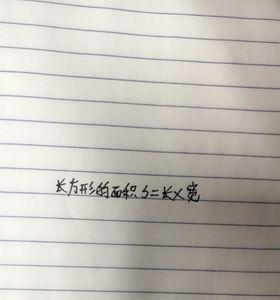 长方形的面积S=长×宽